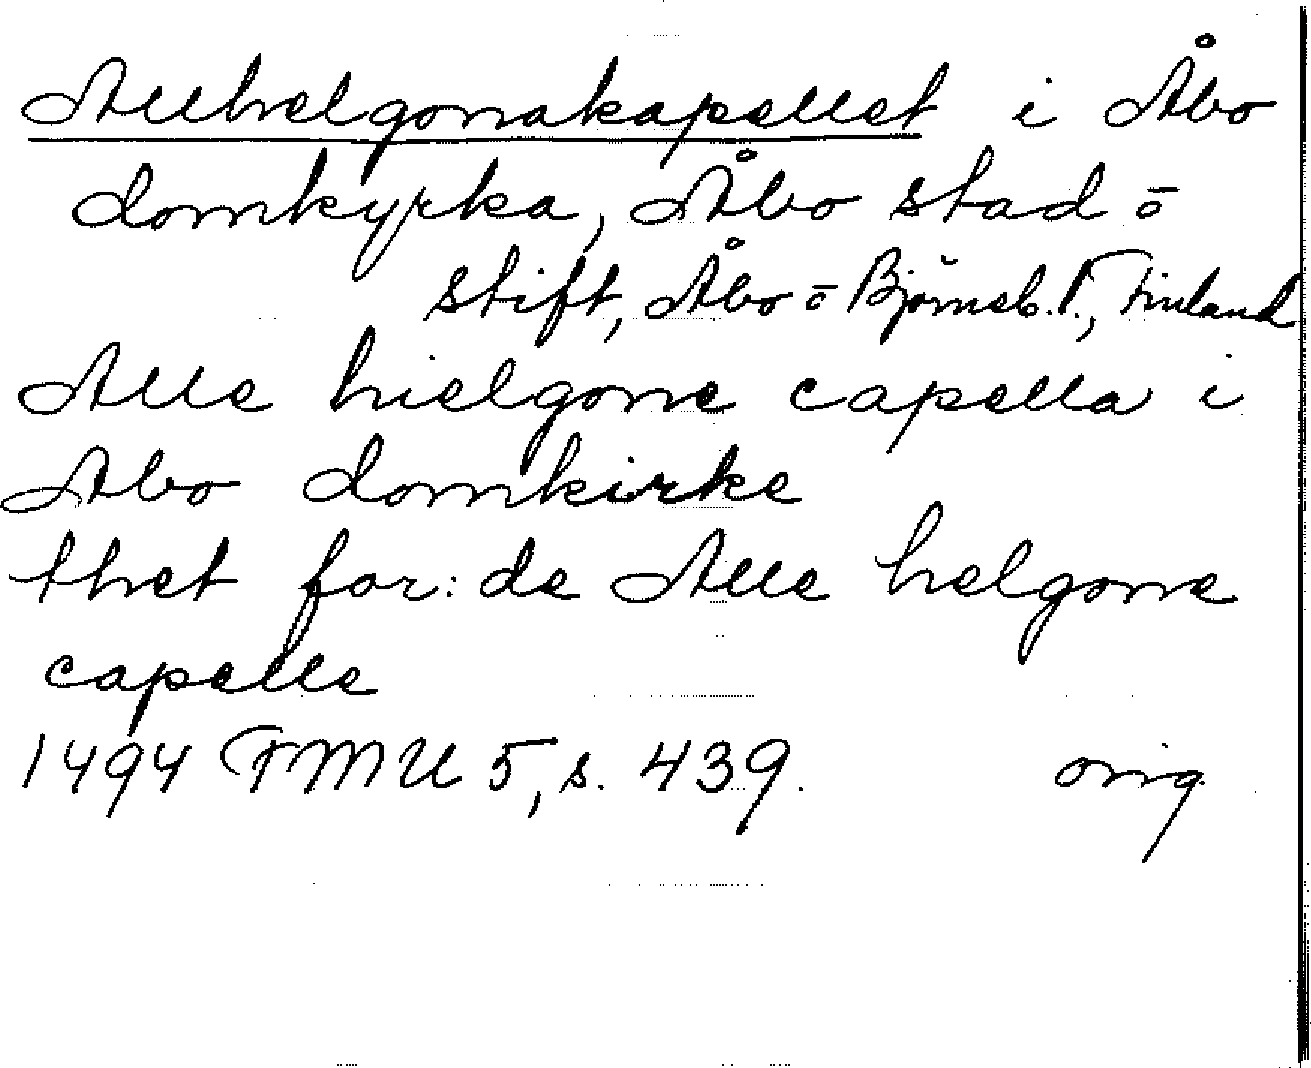 Allhelgonakapellet i Åbo
domkyrka, Åbo stad ō
stift, Åbo ō Björneb. l., Finland
Alle hielgone capella i
Abo domkirke
thet for: de Alle helgone
capelle
1494 FMU 5, s. 439. orig.